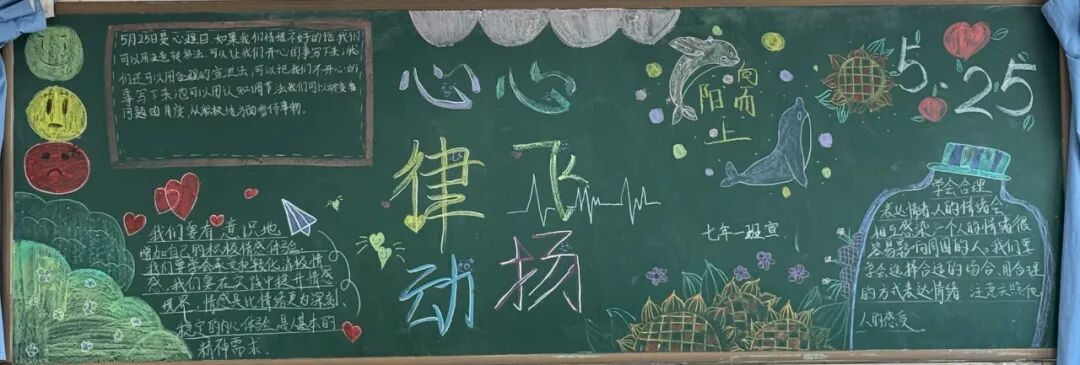 5月25日是心理日.如果我们情绪不好的话,我们
可以用注意转换法.可以让我们开心的事写下来,我
们还可以用合理的宣泄法,可以把我们不开心的
事写下来,也可以用认知调节法,我们可以试着
问题由角度,从积极地方面看待事物.
我们要有意识地
增加自己的积极情感体验.
我们要学会承受和转化消极情
感.我们要在实践中提升情感
境界,情感是比情绪更为深刻、
稳定的内心体验.是人基本的
精神需求.
心律动
心飞扬
向阳
而上
七年一班宣
5.25
学会合理
表达情绪,人的情绪会
相互感染,一个人的情绪很
容易影响周围的人,我们要
学会选择合适的场合,用合理
的方式表达情绪 注意关照他
人的感受